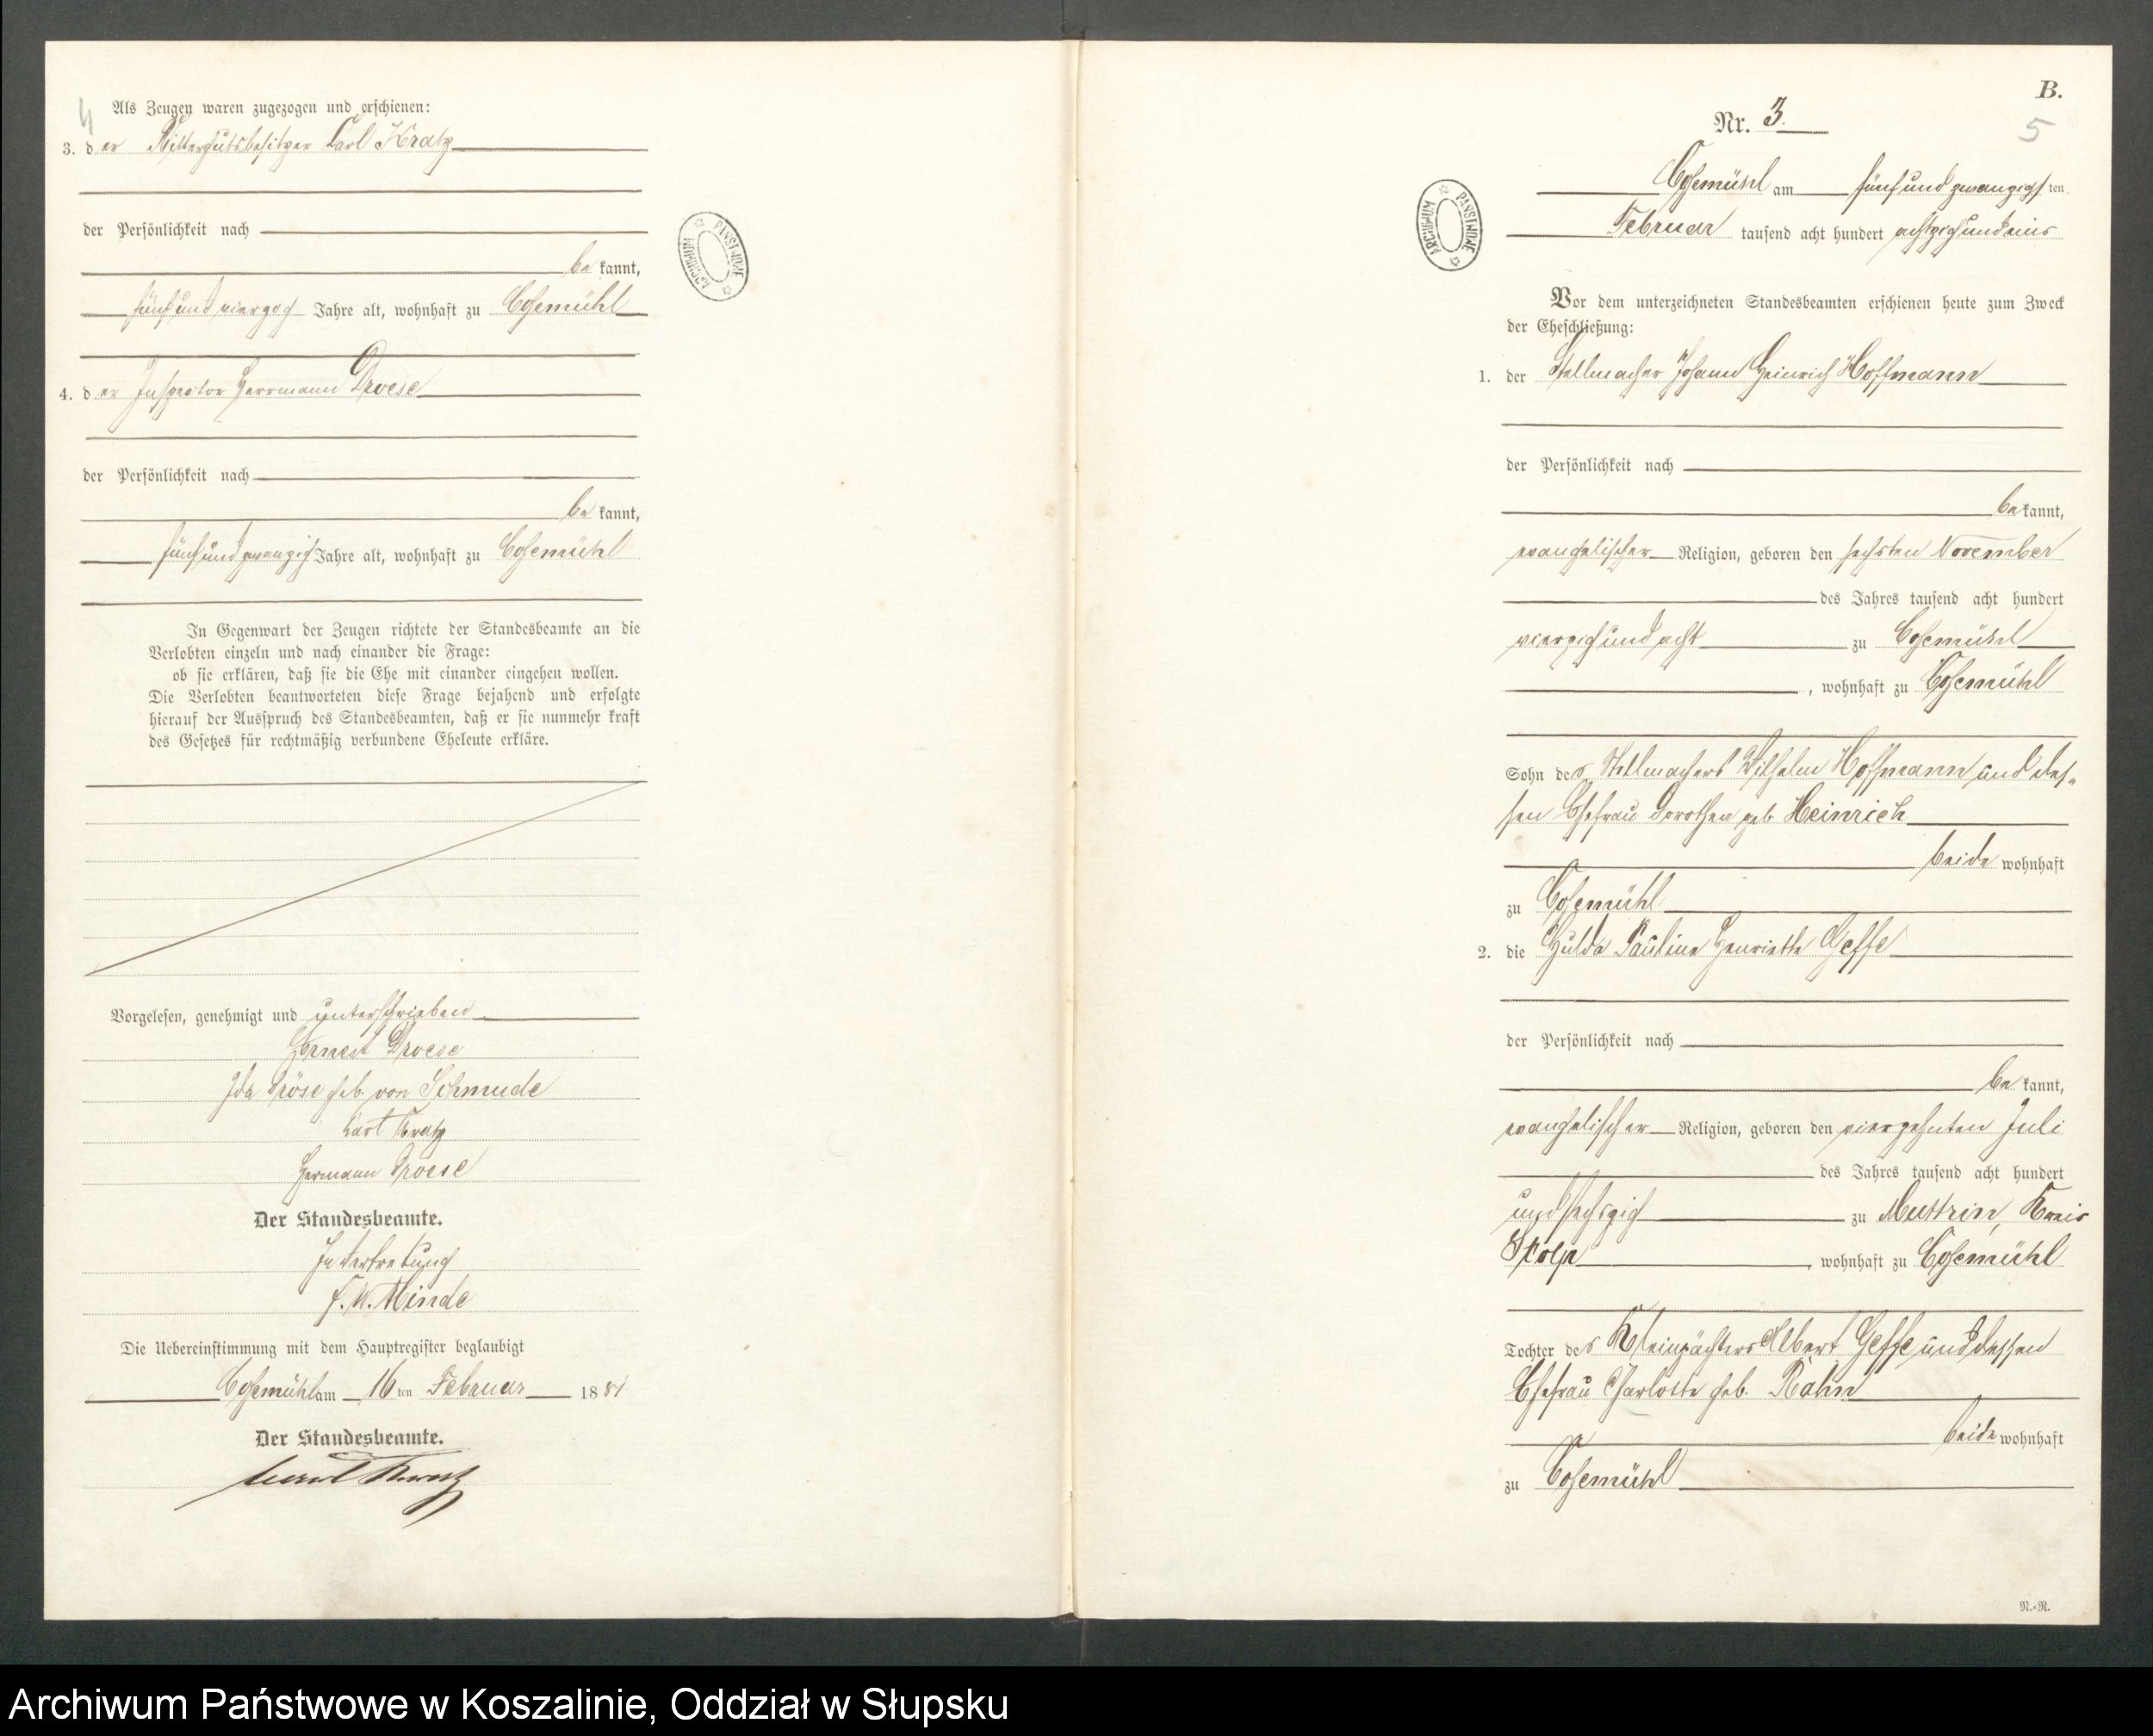 4
Als Zeugen waren zugezogen und erschienen:
3. der Rittergutsbesitzer Carl Kratz
der Persönlichkeit nach
be kannt,
fünf und vierzig Jahre alt, wohnhaft zu Cosemühl
4. der Inspector Herrmann Droese
der Persönlichkeit nach
be kannt,
fünf und zwanzig Jahre alt, wohnhaft zu Cosemühl
In Gegenwart der Zeugen richtete der Standesbeamte an die
Verlobten einzeln und nach einander die Frage:
ob sie erklären, daß sie die Ehe mit einander eingehen wollen.
Die Verlobten beantworteten diese Frage bejahend und erfolgte
hierauf der Ausspruch des Standesbeamten, daß er sie nunmehr kraft
des Gesetzes für rechtmäßig verbundene Eheleute erkläre.
Vorgelesen, genehmigt und unterschrieben
Ernest Droese
Ida Dröse geb. von Schmude
Carl Kratz
Hermann Droese
Der Standesbeamte.
In Vertretung
F. W. Minde
Die Uebereinstimmung mit dem Hauptregister beglaubigt
Cosemühl am 16 ten Februar 1881
Der Standesbeamte.
Kratz
ARCHIWUM PAŃSTWOWE
B.
5
Nr. 3.
Cosemühl am fünf und zwanzigsten
Februar tausend acht hundert achtzig und eins
ARCHIWUM PAŃSTWOWE
Vor dem unterzeichneten Standesbeamten erschienen heute zum Zweck
der Eheschließung:
1. der Stellmacher Johann Heinrich Hoffmann
der Persönlichkeit nach
be kannt,
evangelischer Religion, geboren den sechsten November
des Jahres tausend acht hundert
vierzig und acht zu Cosemühl
, wohnhaft zu Cosemühl
Sohn des Stellmachers Wilhelm Hoffmann und des-
sen Ehefrau Dorothea geb. Heinrich
beide wohnhaft
zu Cosemühl
2. die Hulda Pauline Henriette Geffe
der Persönlichkeit nach
be kannt,
evangelischer Religion, geboren den vierzehnten Juli
des Jahres tausend acht hundert
und sechszig zu Muttrin, Kreis
Stolp, wohnhaft zu Cosemühl
Tochter des Kleinpächters Albert Geffe und dessen
Ehefrau Charlotte geb. Rahn
beide wohnhaft
zu Cosemühl
N.-R.
Archiwum Państwowe w Koszalinie, Oddział w Słupsku